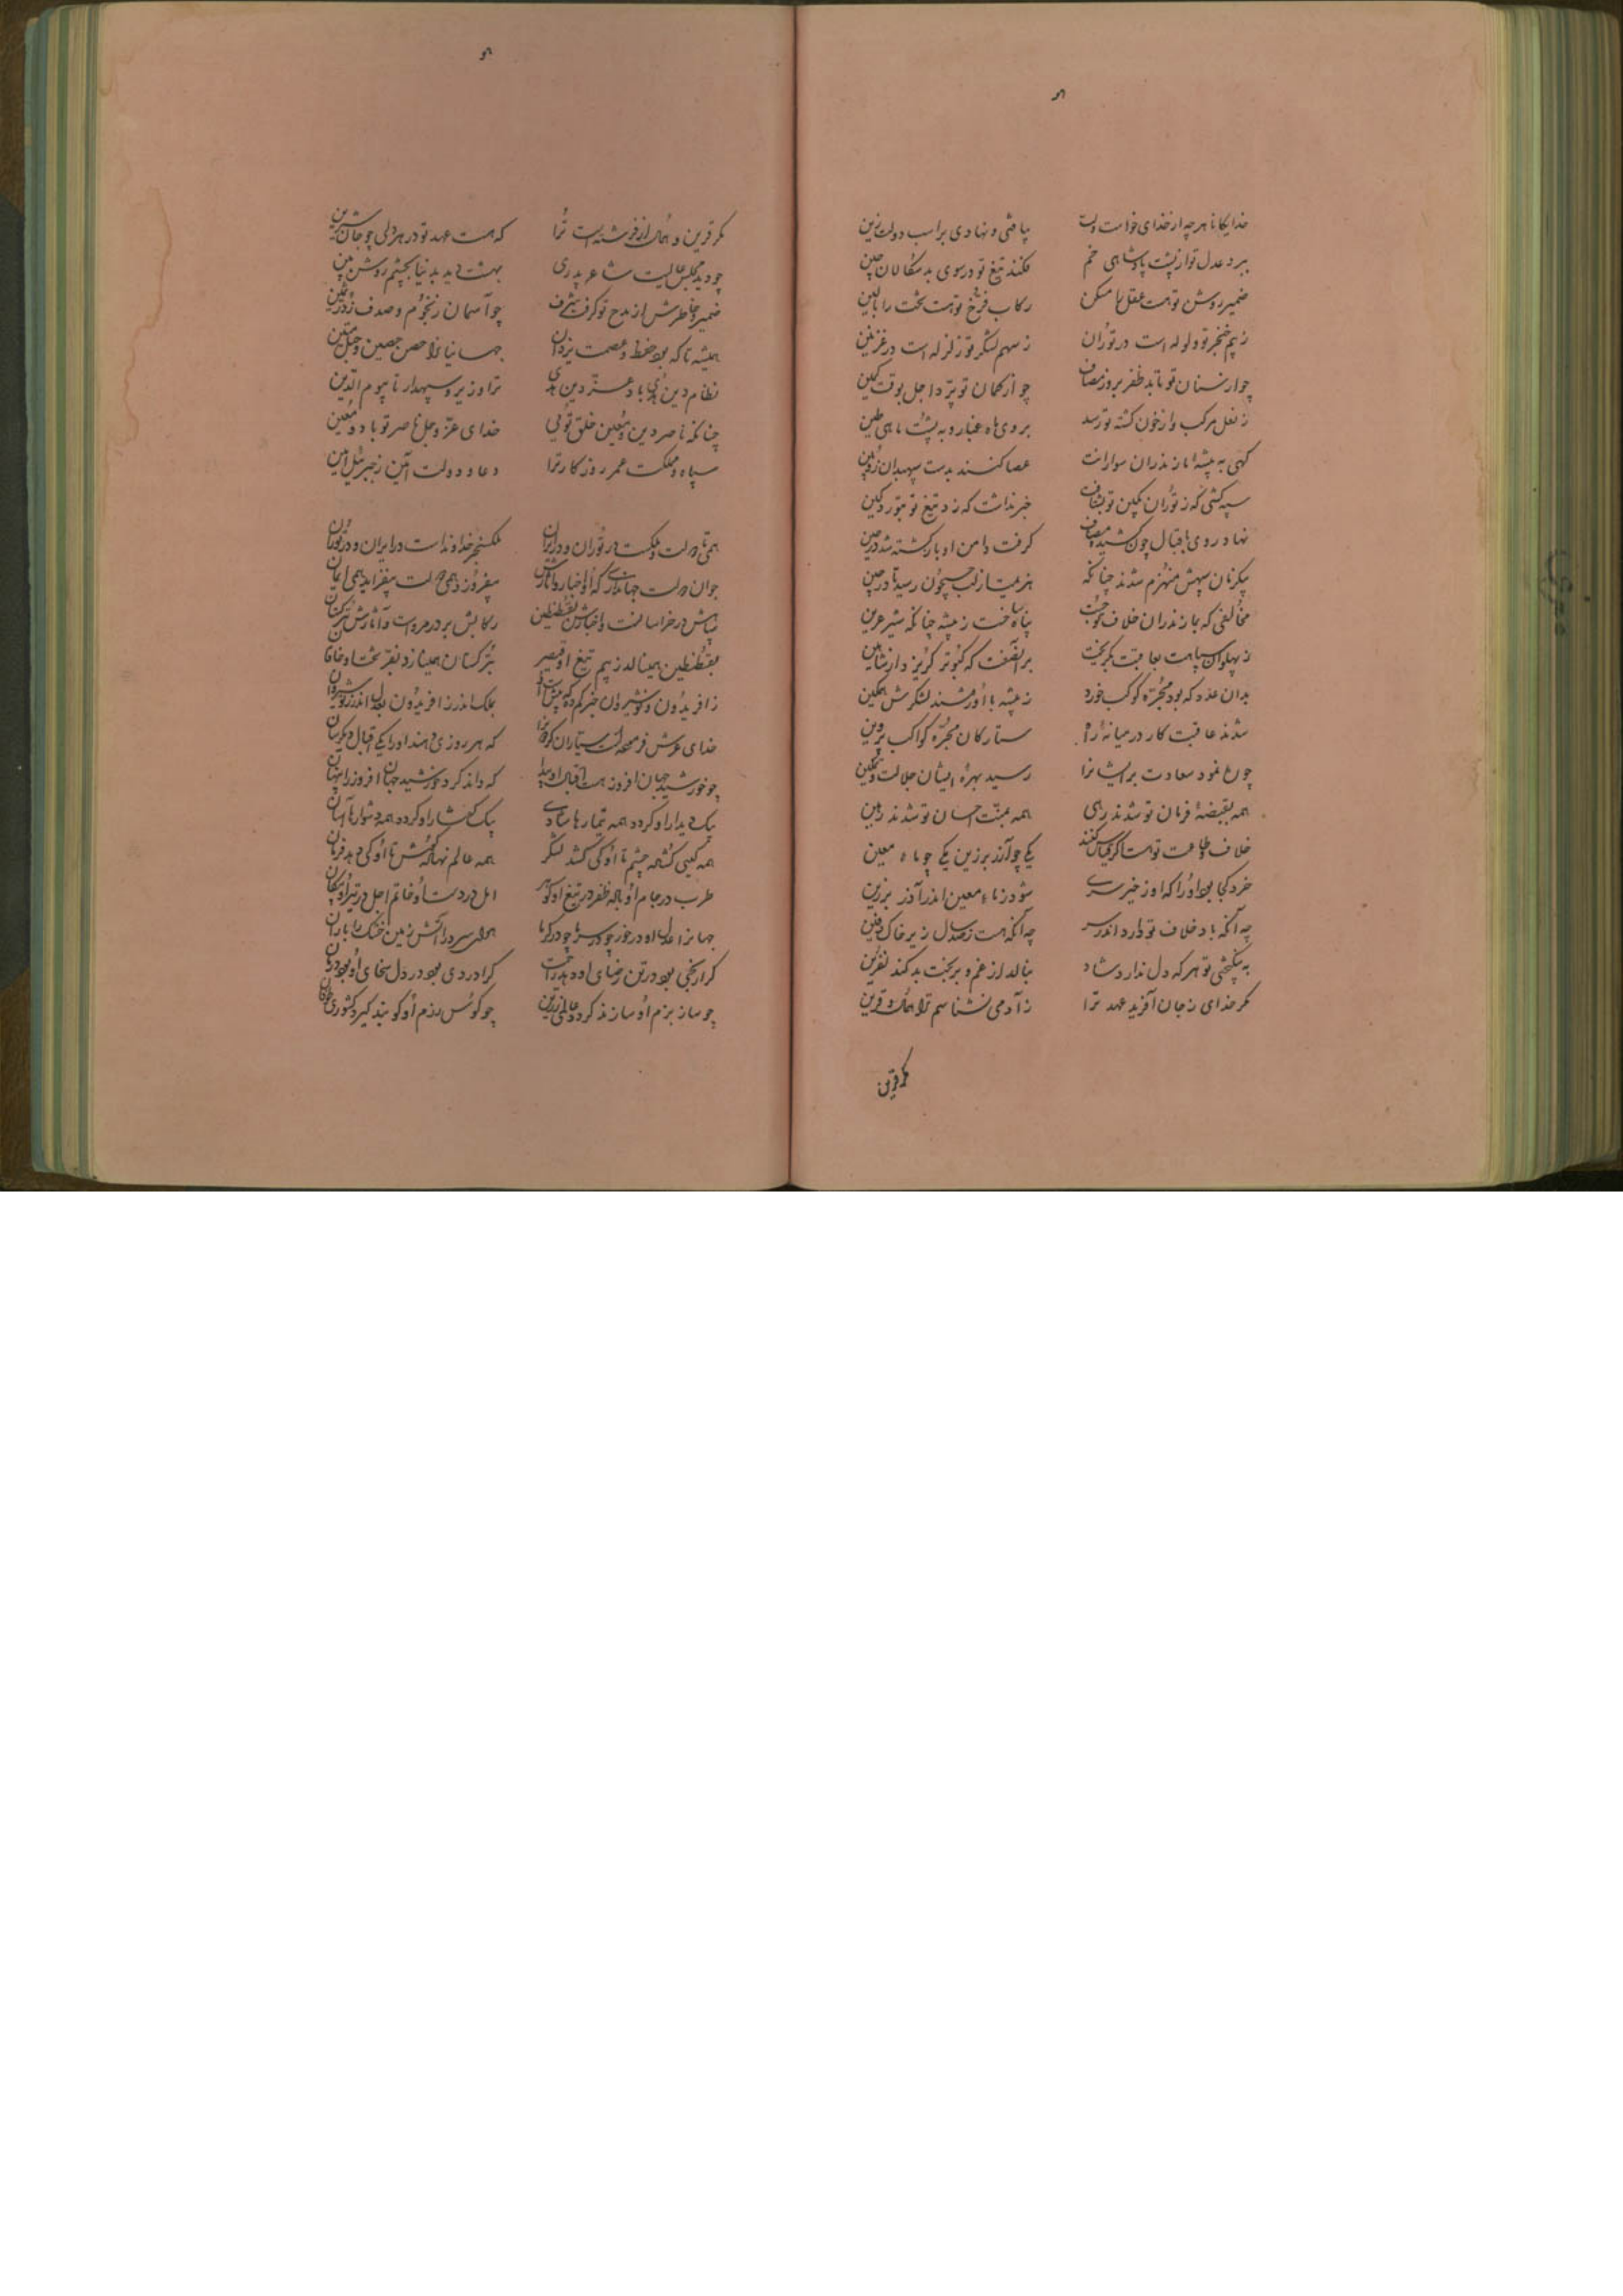 خدایگانا هر چه از خدای خواست دلت بیافتی و نهادی بر اسب دولت زین
ببرد عدل تو از پشت پادشاهی خم فکند تیغ تو در روی بدسگالان چین
ضمیر روشن تو هست عقل را مسکن رکاب فرخ تو هست تخت را بالین
ز بیم خنجر تو ولوله است در توران ز سهم لشکر تو زلزله است در غزنین
چو از سنان تو تابد ظفر بروز مصاف چو از کمان تو پرد اجل بوقت کمین
ز نعل مرکب و از خون کشته تو رسد بروی ماه غبار و به پشت ماهی طین
گهی به بیشه مازندران سوارانت عصا کنند بدست سپهبدان زوبین
سپه کشی که ز توران بکین تو بشتافت خبر نداشت که زد تیغ تو بتوز و کین
نهاد روی باقبال چون کشید مصاف گرفت دامن ادبار کشته شد در حین
یکزمان سپهش منهزم شدند چنانکه هزیمتی از لب جیحون رسید تا در چین
مخالفی که بمازندران خلاف تو جست پناه ساخت ز بیشه چنانکه شیر عرین
ز پهلوان سپاهت بعاقبت بگریخت بر آنصفت که کبوتر گریزد از شاهین
بدان عدد که بود مجره کوکب خورد ز بیشه با او رفتند لشکرش همگین
شدند عاقبت کار در میانه راه ستارگان مجره کواکب پروین
چو رخ نمود سعادت بر ایشانرا رسید بهره ایشان جلالت و تمکین
همه بقبضه فرمان تو شدند رهی همه بمنت احسان تو شدند رهین
خلاف و طاعت تو هست اگر قیاس کنند یکی چو آذر برزین یکی چو ماء معین
خرد کجا بود او را که او ز خیره سری شود ز ماء معین اندر آذر برزین
چه آنکه باد خلاف تو دارد اندر سر چه آنکه هست ز صد سال زیر خاک دفین
به نیکبختی تو هر که دل ندارد شاد بنالد از غم و بر بخت بد کند نفرین
مگر خدای ز جان آفرید عهد ترا ز آدمی نشناسم ترا همال و قرین
مگر قرین
مگر قرین و همال از فرشته است ترا که هست عهد تو در هر دلی چو جان شیرین
چو دید مجلس عالیت شاعر پدری بهشت دید بدنیا بچشم روشن بین
ضمیر و خاطرش از مدح تو گرفت شرف چو آسمان ز نجوم و صدف ز در ثمین
همیشه تا که بود حفظ و عصمت یزدان جهانیانرا حصن حصین و حبل متین
نظام دین هدی باد و عز دین هدی ترا وزیر و سپهدار تا بیوم الدین
چنانکه ناصر دین و معین خلق توئی خدای عز و جل ناصر تو باد و معین
سپاه و مملکت عمر و روزگار ترا دعا و دولت آمین ز جبرئیل امین
همی تا دولت و ملکست در توران و در ایران ملک سنجر خداوند است در ایران و در توران
جوان دولت جهانداری که از اخبار و آثارش بیفروزد همی دولت بیفزاید همی ایمان
سپاهش در خراسانست و اخبارش بقسطنطین رکابش بر در مروست و آثارش بترکستان
بقسطنطین همی نالد ز بیم تیغ او قیصر بترکستان همی نازد بفر بخت او خاقان
ز افریدون و نوشیروان خبر کم ده که پیش است او بملک اندر ز افریدون بعدل اندر ز نوشروان
خدای عرش فر محمدت بسیار کرد او را که هر روزی دهد او را یکی اقبال دیگرسان
چو خورشید جهان افروز هست اقبال او پیدا که داند کرد خورشید جهان افروز را پنهان
بیک دیدار او گردد همه تیمارها شادی بیک گفتار او گردد همه دشوارها آسان
همه گیتی گشاده چشم تا او کی کشد لشکر همه عالم نهاده گوش تا او کی دهد فرمان
طرب در جام او باده ظفر در تیغ او گوهر امل در دست او خاتم اجل در تیر او پیکان
جهانرا عدل او در خور چو در سرما چو در گرما هوای سرد را آتش زمین خشک را باران
کرا رنجی بود در تن رضای او دهد راحت کرا دردی بود در دل سخای او بود درمان
چو ساز بزم او سازند گردد عالمی زرین چو کوس رزم او کوبند گیرد کشوری طوفان